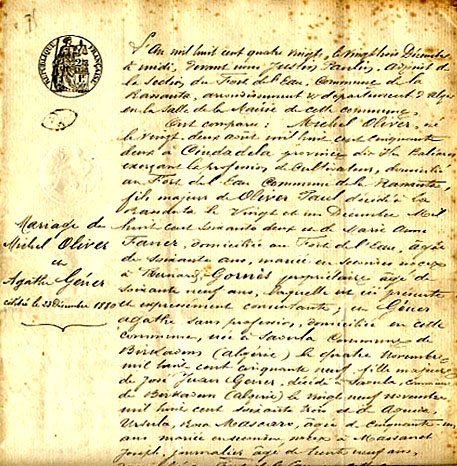 RÉPUBLIQUE FRANÇAISE
L'An mil huit cent quatre vingt, le vingt trois Décembre
à midi, devant nous Justin Paulin, Adjoint de la
Section du Fort de l'Eau, Commune de la
Rassauta, arrondissement & département d'Alger
en la salle de la Mairie de cette commune,
Ont comparu: Michel Oliver, né
le vingt deux août mil huit cent cinquante
deux à Ciudadela province des Iles Baléares
exerçant la profession de Cultivateur, domicilié
au Fort de l'Eau Commune de la Rassauta,
fils majeur de Oliver Paul décédé à la
Rassauta le vingt et un Décembre Mil
huit cent soixante deux et de Marie Anne
Faner, domiciliée au Fort de l'Eau, âgée
de soixante ans, mariée en secondes noces
à Bernard Gornès propriétaire âgé de
soixante neuf ans, laquelle est ici présente
et expressément consentante, et Géner
Agathe sans profession, domiciliée en cette
commune, née à Saoula Commune de
Birkadem (Algérie) le quatre Novembre
mil huit cent cinquante neuf, fille majeure
de José Juan Gener, décédé à Saoula, commune
de Birkadem (Algérie) le vingt neuf novembre
mil huit cent soixante trois et de
Ursula, Mascaro, âgée de Cinquante
ans mariée en secondes noces à Massanet
Joseph, journalier âgé de trente neuf ans,
Mariage de
Michel Oliver
et
Agathe Géner
célébré le 23 Décembre 1880